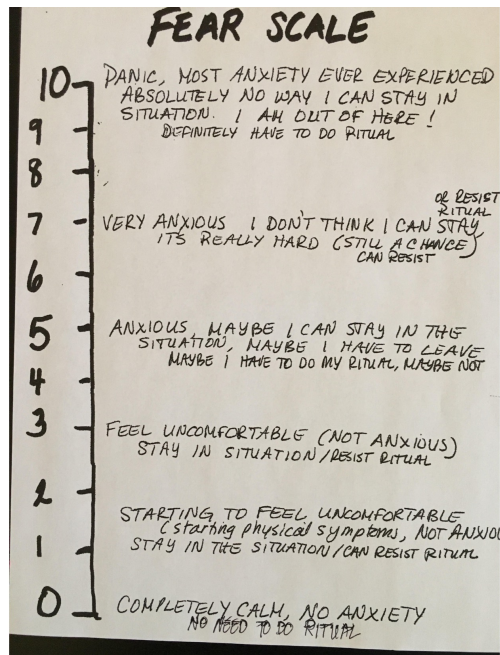 FEAR SCALE
10 PANIC, MOST ANXIETY EVER EXPERIENCED
ABSOLUTELY NO WAY I CAN STAY IN
SITUATION. I AM OUT OF HERE !
9 DEFINITELY HAVE TO DO RITUAL
8
OR RESIST
RITUAL
7 VERY ANXIOUS I DON'T THINK I CAN STAY,
ITS REALLY HARD (STILL A CHANCE)
CAN RESIST
6
5 ANXIOUS, MAYBE I CAN STAY IN THE
SITUATION, MAYBE I HAVE TO LEAVE
MAYBE I HAVE TO DO MY RITUAL, MAYBE NOT
4
3 FEEL UNCOMFORTABLE (NOT ANXIOUS)
STAY IN SITUATION/RESIST RITUAL
2
STARTING TO FEEL UNCOMFORTABLE
(starting physical symptoms, NOT ANXIOU
1 STAY IN THE SITUATION/CAN RESIST RITUAL
0 COMPLETELY CALM, NO ANXIETY
NO NEED TO DO RITUAL